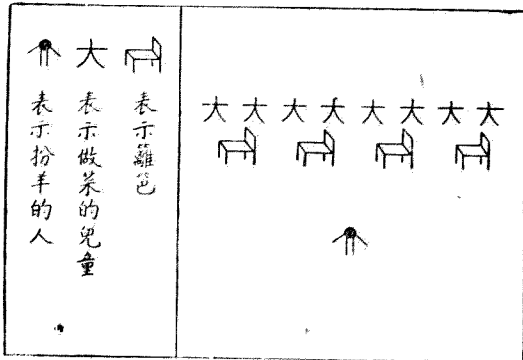 表示籬笆
大 表示做菜的兒童
表示扮羊的人
大 大 大 大 大 大 大 大